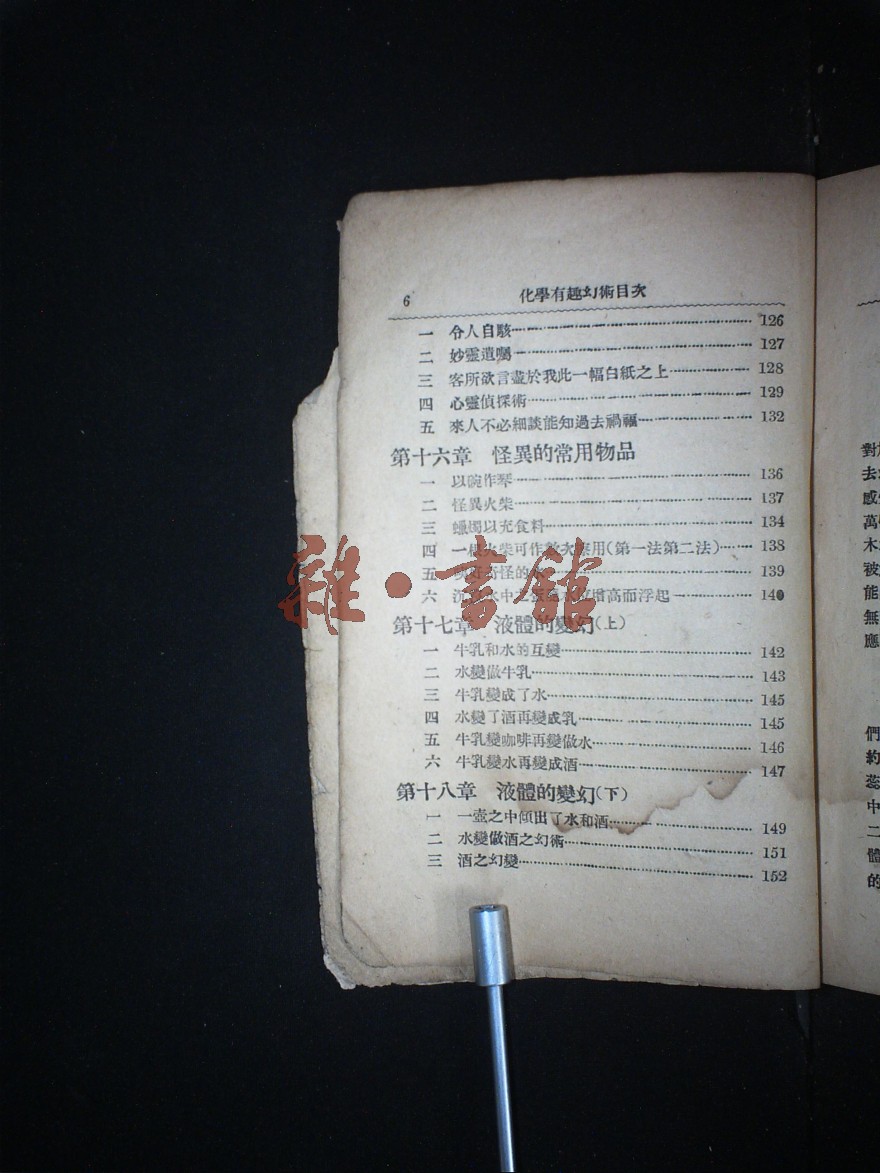 6 化學有趣幻術目次
一 令人自駭 126
二 妙靈遺囑 127
三 客所欲言盡於我此一幅白紙之上 128
四 心靈偵探術 129
五 來人不必細談能知過去禍福 132
第十六章 怪異的常用物品
一 以碗作琴 136
二 怪異火柴 137
三 蠟燭以充食料 134
四 一根火柴可作數次應用(第一法第二法) 138
五 奇怪的 139
六 水中 高而浮起 140
第十七章 液體的變幻(上)
一 牛乳和水的互變 142
二 水變做牛乳 143
三 牛乳變成了水 145
四 水變了酒再變成乳 145
五 牛乳變咖啡再變做水 146
六 牛乳變水再變成酒 147
第十八章 液體的變幻(下)
一 一壺之中傾出了水和酒 149
二 水變做酒之幻術 151
三 酒之幻變 152
雜·書館
對
去
感
萬
木
被
能
無
應
們
約
恐
中
二
體
的